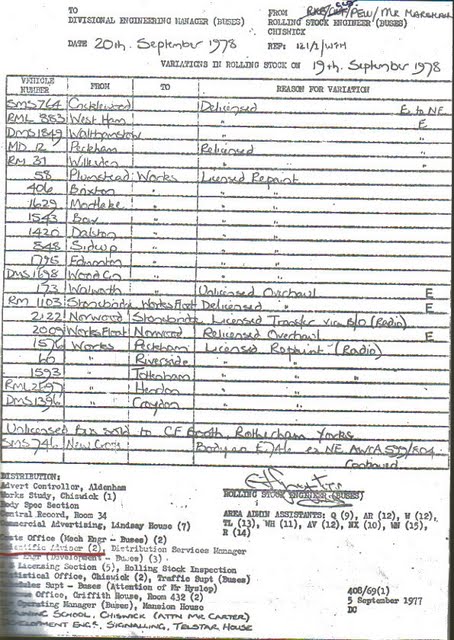 TO
DIVISIONAL ENGINEERING MANAGER (BUSES)
FROM /PEW/MR MARSHAM
ROLLING STOCK ENGINEER (BUSES)
CHISWICK
DATE 20th. September 1978
REF: 121/2/WPH
VARIATIONS IN ROLLING STOCK ON 19th. September 1978
VEHICLE NUMBER FROM TO REASON FOR VARIATION
SMS764 Cricklewood Delicensed E to NE
RML 883 West Ham " E
DMS1849 Walthamstow " "
MD 12 Peckham Relicensed "
RM 31 Willesden " "
58 Plumstead Works Licensed Repaint
406 Brixton " " "
1629 Mortlake " " "
1543 Bow " " "
1420 Dalston " " "
848 Sidcup " " "
1795 Edmonton " " "
DMS1698 Wood Gn " " "
173 Walworth " Unlicensed Overhaul E
RM 1103 Stonebridge Works Float Delicensed " E
2122 Norwood Stonebridge Licensed Transfer via B/O (Radio)
2009 Works Float Norwood Relicensed Overhaul E
1576 Works Peckham Licensed Repaint (Radio)
66 " Riverside " "
1593 " Tottenham " "
RML2697 " Hendon " "
DMS1396 " Croydon " "
Unlicensed bus sold to CF Booth, Rotherham, Yorks
SMS746 New Cross
Continued
DISTRIBUTION:
Advert Controller, Aldenham
Works Study, Chiswick (1)
Body Spec Section
Central Record, Room 34
Commercial Advertising, Lindsay House (7)
Costs Office (Mech Engr - Buses) (2)
Scientific Advisor (2), Distribution Services Manager
Engr (Development - Buses) (3)
& Licensing Section (5), Rolling Stock Inspection
Statistical Office, Chiswick (2), Traffic Supt (Buses)
Schedules Supt - Buses (Attention of Mr Hyslop)
Office, Griffith House, Room 432 (2)
Operating Manager (Buses), Mansion House
TRAINING SCHOOL, CHISWICK (ATTN MR. CARTER)
DEVELOPMENT ENGR. SIGNALLING, TELSTAR HOUSE
ROLLING STOCK ENGINEER (BUSES)
AREA ADMIN ASSISTANTS: Q (9), AR (12), W (12),
TL (13), WH (11), AV (12), NX (10), WN (15),
R (14)
408/69(1)
5 September 1977
DG